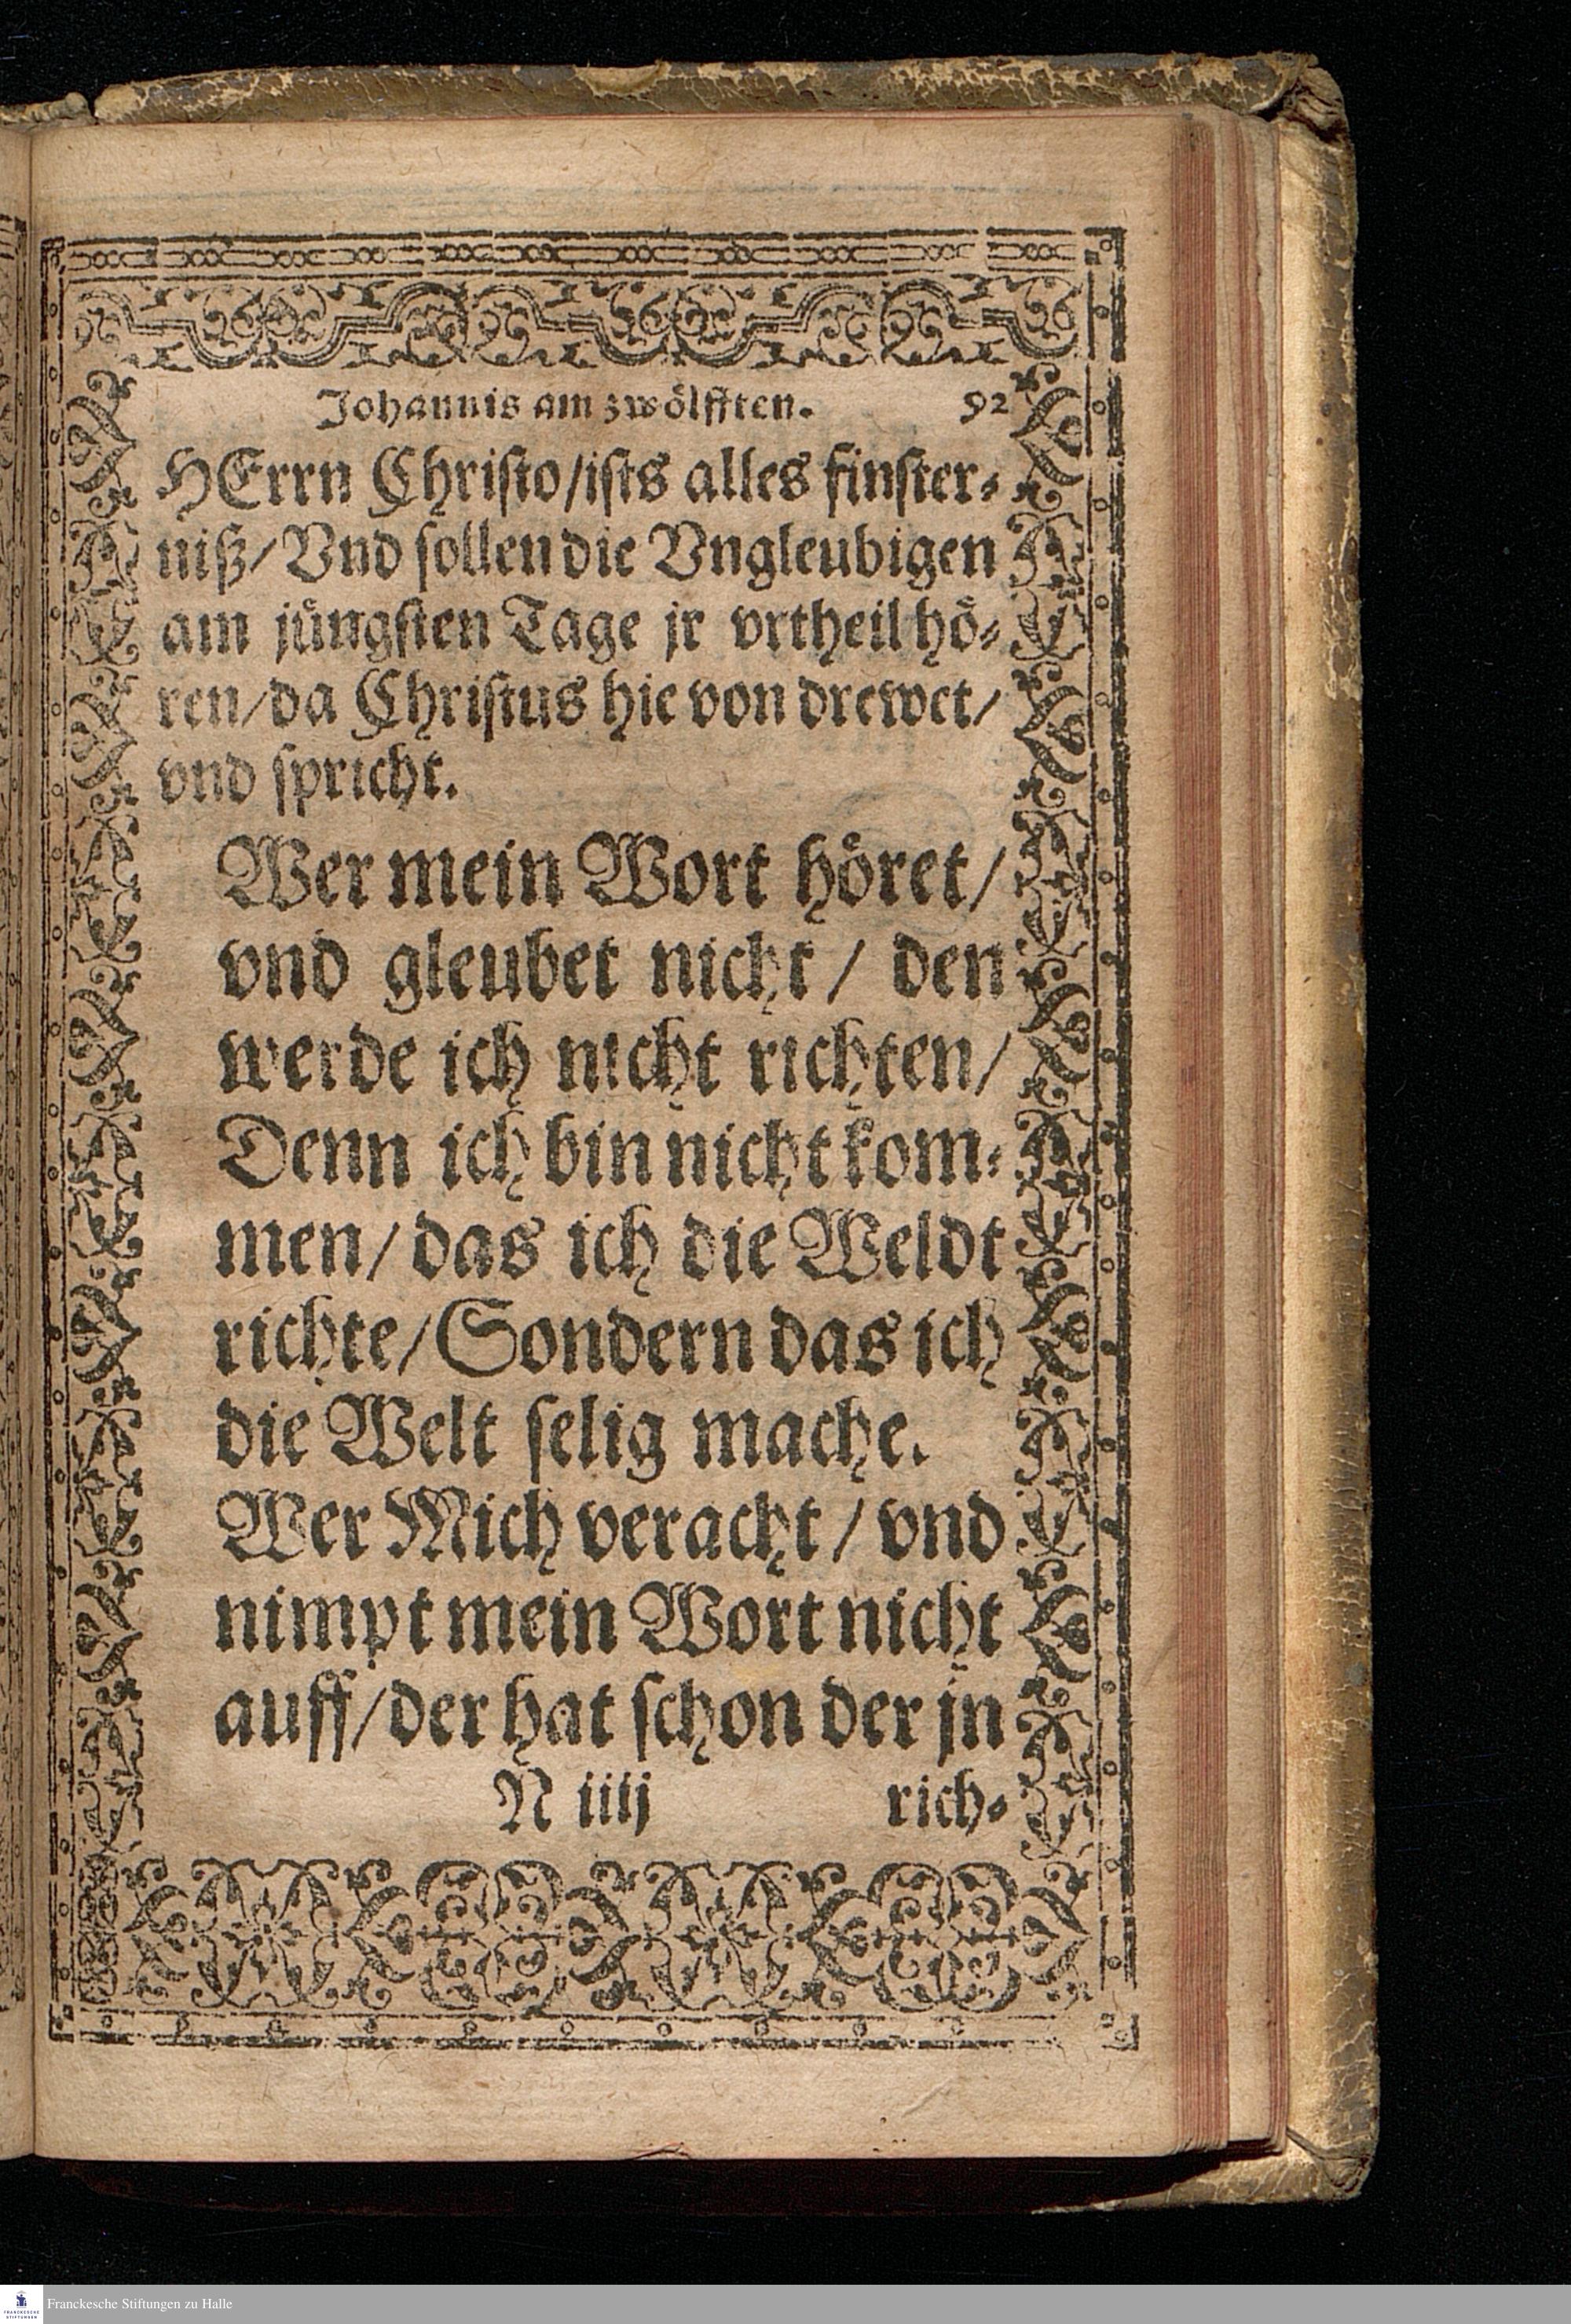 Johannis am zwölfften. 92
HErrn Christo/ists alles finster⸗
niß/Vnd sollen die Vngleubigen
am jüngsten Tage jr vrtheil hö⸗
ren/da Christus hie von drewet/
vnd spricht.
Wer mein Wort höret/
vnd gleubet nicht/ den
werde ich nicht richten/
Denn ich bin nicht kom⸗
men/das ich die Weldt
richte/Sondern das ich
die Welt selig mache.
Wer Mich veracht/vnd
nimpt mein Wort nicht
auff/der hat schon der jn
N iiij rich⸗
FRANCKESCHE
STIFTUNGEN
Franckesche Stiftungen zu Halle